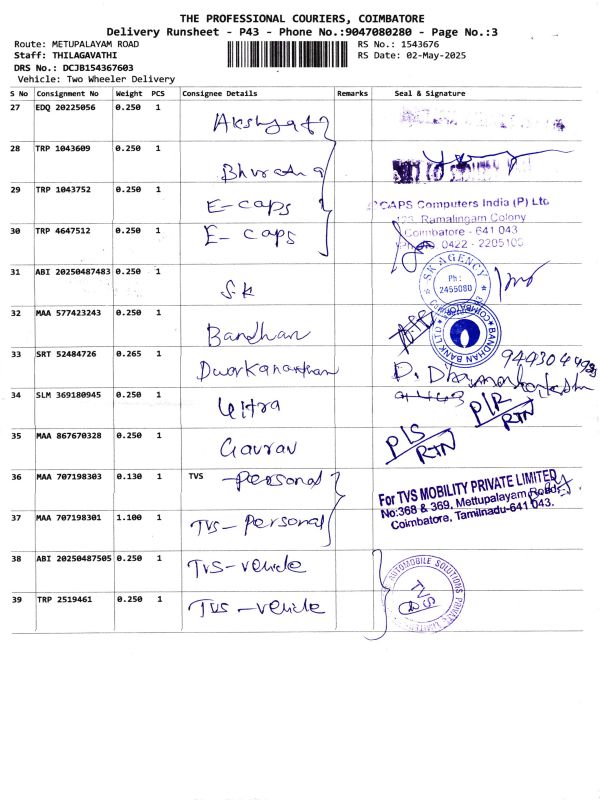 THE PROFESSIONAL COURIERS, COIMBATORE
Delivery Runsheet - P43 - Phone No.:9047080280 - Page No.:3
Route: METUPALAYAM ROAD RS No.: 1543676
Staff: THILAGAVATHI RS Date: 02-May-2025
DRS No.: DCJB154367603
Vehicle: Two Wheeler Delivery
S No Consignment No Weight PCS Consignee Details Remarks Seal & Signature
27 EDQ 20225056 0.250 1
28 TRP 1043609 0.250 1
29 TRP 1043752 0.250 1 E-caps
CAPS Computers India (P) Ltd
123, Ramalingam Colony
30 TRP 4647512 0.250 1 E-caps Coimbatore - 641 043
0422 - 2205100
31 ABI 20250487483 0.250 1 S.K
SK AGENCY
Ph:
2455080
32 MAA 577423243 0.250 1 Bandhan
BANDHAN BANK LTD COIMBATORE
33 SRT 52484726 0.265 1
34 SLM 369180945 0.250 1 P/R
RTN
35 MAA 867670328 0.250 1 Gaurav P/S
RTN
36 MAA 707198303 0.130 1 TVS -personal
For TVS MOBILITY PRIVATE LIMITED
No:368 & 369, Mettupalayam Road,
Coimbatore, Tamilnadu-641 043.
37 MAA 707198301 1.100 1 TVS-personal
38 ABI 20250487505 0.250 1 TVS-vehicle
AUTOMOBILE SOLUTIONS PRIVATE LIMITED
TVS
39 TRP 2519461 0.250 1 TVS-vehicle